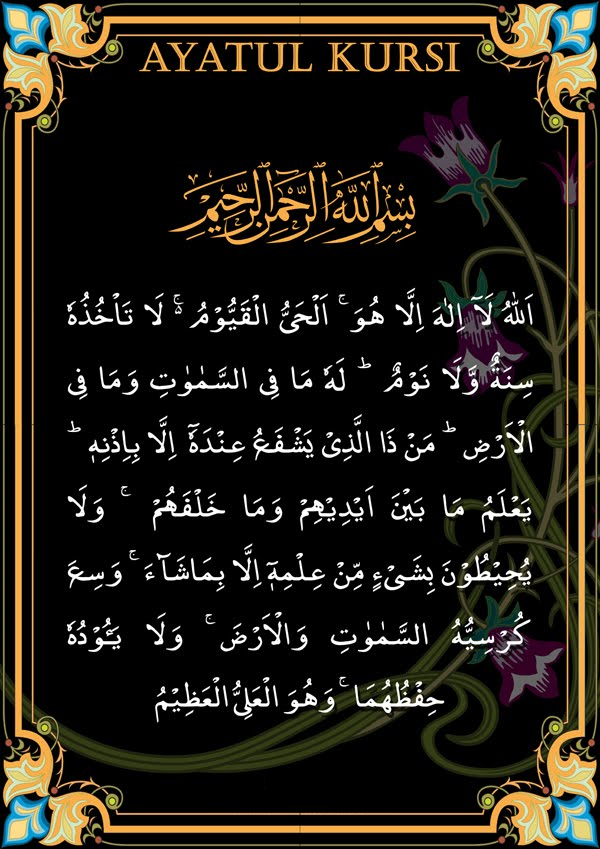 AYATUL KURSI
بِسْمِ اللّٰهِ الرَّحْمٰنِ الرَّحِيْمِ
اَللّٰهُ لَآ اِلٰهَ اِلَّا هُوَ ۚ اَلْحَيُّ الْقَيُّوْمُ ۬ۚ لَا تَاْخُذُهٗ
سِنَةٌ وَّلَا نَوْمٌ ؕ لَهٗ مَا فِى السَّمٰوٰتِ وَمَا فِى
الْاَرْضِ ؕ مَنْ ذَا الَّذِىْ يَشْفَعُ عِنْدَهٗۤ اِلَّا بِاِذْنِهٖ ؕ
يَعْلَمُ مَا بَيْنَ اَيْدِيْهِمْ وَمَا خَلْفَهُمْ ۚ وَلَا
يُحِيْطُوْنَ بِشَىْءٍ مِّنْ عِلْمِهٖۤ اِلَّا بِمَاشَآءَ ۚ وَسِعَ
كُرْسِيُّهُ السَّمٰوٰتِ وَالْاَرْضَ ۚ وَلَا يَـُٔوْدُهٗ
حِفْظُهُمَا ۚ وَهُوَ الْعَلِىُّ الْعَظِيْمُ